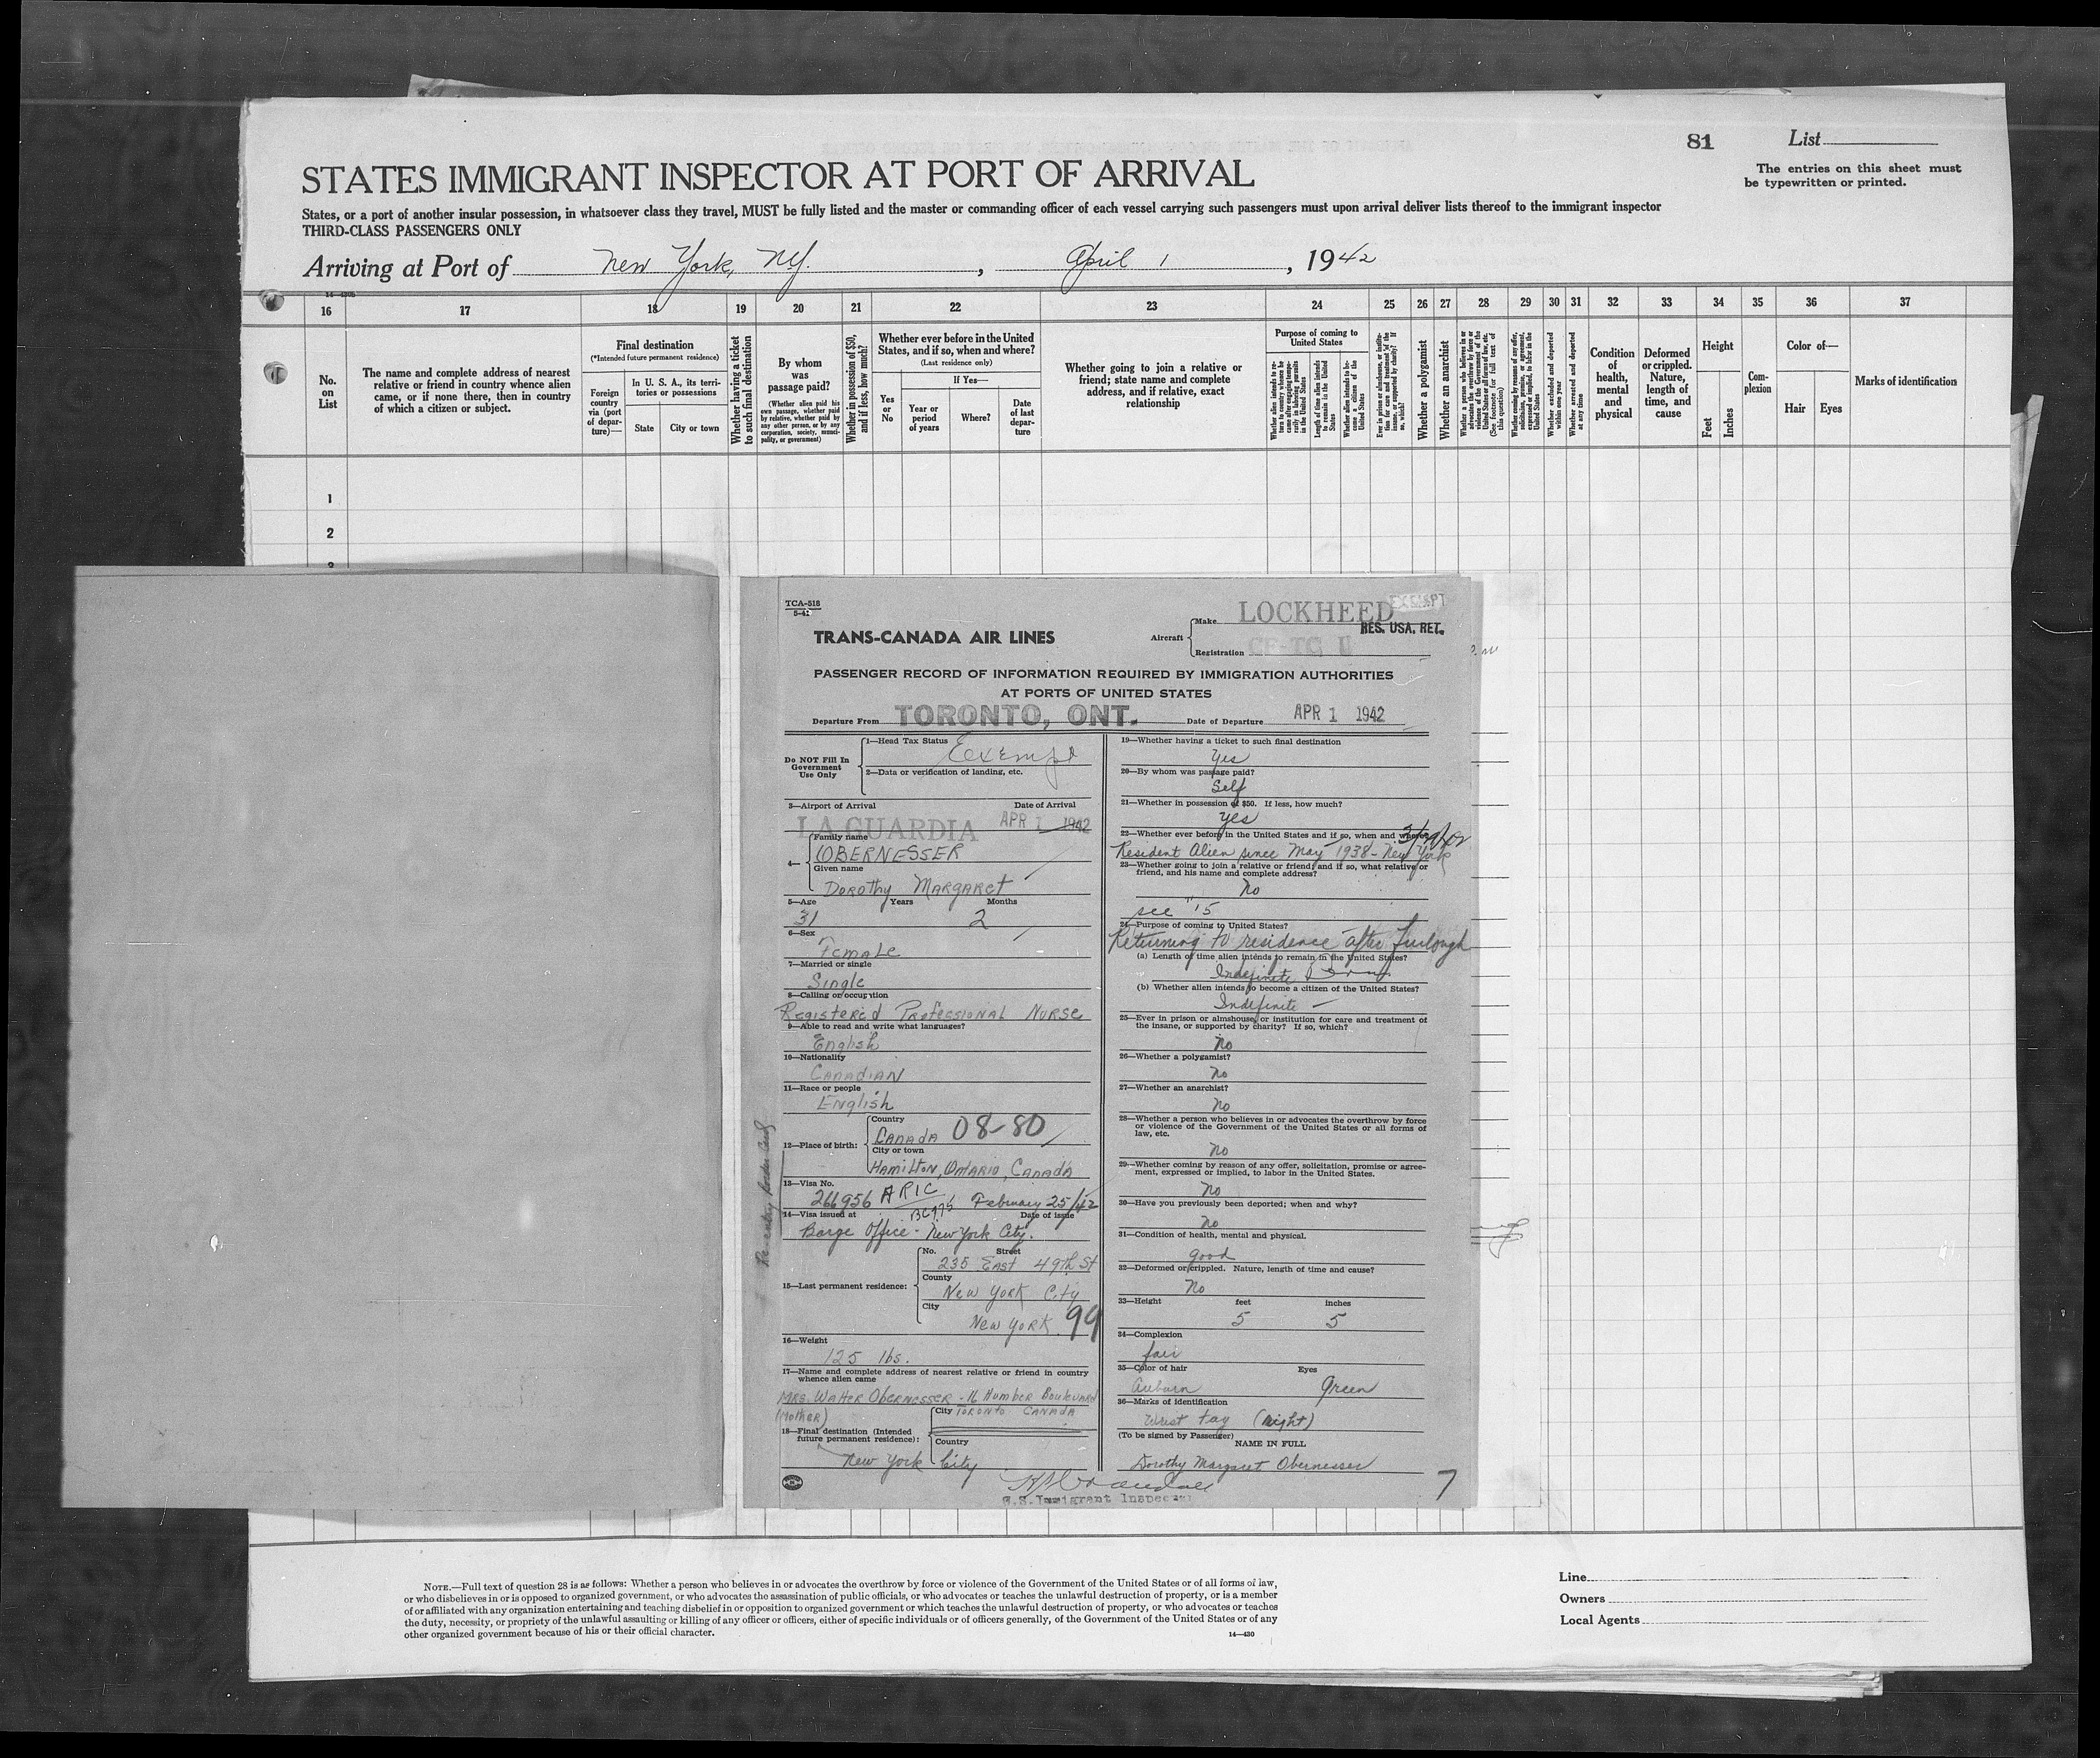 81
List
The entries on this sheet must
be typewritten or printed.
STATES IMMIGRANT INSPECTOR AT PORT OF ARRIVAL
States, or a port of another insular possession, in whatsoever class they travel, MUST be fully listed and the master or commanding officer of each vessel carrying such passengers must upon arrival deliver lists thereof to the immigrant inspector
THIRD-CLASS PASSENGERS ONLY
Arriving at Port of New York, NY. , April 1 , 1942
16 17 18 19 20 21 22 23 24 25 26 27 28 29 30 31 32 33 34 35 36 37
No.
on
List
The name and complete address of nearest
relative or friend in country whence alien
came, or if none there, then in country
of which a citizen or subject.
Final destination
(*Intended future permanent residence)
Foreign
country
via (port
of depar-
ture)—
In U. S. A., its terri-
tories or possessions
State
City or town
Whether having a ticket
to such final destination
By whom
was
passage paid?
(Whether alien paid his
own passage, whether paid
by relative, whether paid by
any other person, or by any
corporation, society, munici-
pality, or government)
Whether in possession of $50,
and if less, how much?
Whether ever before in the United
States, and if so, when and where?
(Last residence only)
Yes
or
No
If Yes—
Year or
period
of years
Where?
Date
of last
depar-
ture
Whether going to join a relative or
friend; state name and complete
address, and if relative, exact
relationship
Purpose of coming to
United States
Length of time alien intends
to remain in the United
States
Whether alien intends to be-
come a citizen of the
United States
Whether a polygamist
Whether an anarchist
Whether excluded and deported
within one year
Whether arrested and deported
at any time
Condition
of
health,
mental
and
physical
Deformed
or crippled.
Nature,
length of
time, and
cause
Height
Feet
Inches
Com-
plexion
Color of—
Hair
Eyes
Marks of identification
1
2
3
TCA-518
5-41
TRANS-CANADA AIR LINES
Aircraft
Make LOCKHEED
EXEMPT
RES. USA. RET.
Registration CF-TC
PASSENGER RECORD OF INFORMATION REQUIRED BY IMMIGRATION AUTHORITIES
AT PORTS OF UNITED STATES
Departure From TORONTO, ONT. Date of Departure APR 1 1942
Do NOT Fill In
Government
Use Only
1—Head Tax Status Exempt
2—Data or verification of landing, etc.
3—Airport of Arrival Date of Arrival
LA GUARDIA APR 1 1942
4—
Family name
OBERNESSER
Given name
Dorothy Margaret
5—Age Years Months
31 2
6—Sex
Female
7—Married or single
Single
8—Calling or occupation
Registered Professional Nurse
9—Able to read and write what languages?
English
10—Nationality
Canadian
11—Race or people
English
12—Place of birth:
Country
Canada 08-80
City or town
Hamilton, Ontario, Canada
13—Visa No.
266956 ARIC February 25/42
14—Visa issued at Date of issue
Barge Office - New York City.
15—Last permanent residence:
No. Street
235 East 49th St
County
New York City
City
New York. 99
16—Weight
125 lbs.
17—Name and complete address of nearest relative or friend in country
whence alien came
Mrs. Walter Obernesser - 16 Humber Boulevard
(Mother)
City Toronto Canada
18—Final destination (Intended
future permanent residence):
Country
New York City
19—Whether having a ticket to such final destination
Yes
20—By whom was passage paid?
Self
21—Whether in possession of $50. If less, how much?
yes
22—Whether ever before in the United States and if so, when and where?
Resident Alien since May 1938 - New York
23—Whether going to join a relative or friend; and if so, what relative or
friend, and his name and complete address?
No
see "15
24—Purpose of coming to United States?
Returning to residence after furlough
(a) Length of time alien intends to remain in the United States?
Indefinite
(b) Whether alien intends to become a citizen of the United States?
Indefinite
25—Ever in prison or almshouse, or institution for care and treatment of
the insane, or supported by charity? If so, which?
No
26—Whether a polygamist?
No
27—Whether an anarchist?
No
28—Whether a person who believes in or advocates the overthrow by force
or violence of the Government of the United States or all forms of
law, etc.
No
29—Whether coming by reason of any offer, solicitation, promise or agree-
ment, expressed or implied, to labor in the United States.
No
30—Have you previously been deported; when and why?
No
31—Condition of health, mental and physical.
good
32—Deformed or crippled. Nature, length of time and cause?
No
33—Height feet inches
5 5
34—Complexion
fair
35—Color of hair Eyes
Auburn Green
36—Marks of identification
Wrist (right)
(To be signed by Passenger)
NAME IN FULL
Dorothy Margaret Obernesser
U.S. Immigrant Inspector
7
NOTE.—Full text of question 28 is as follows: Whether a person who believes in or advocates the overthrow by force or violence of the Government of the United States or of all forms of law,
or who disbelieves in or is opposed to organized government, or who advocates the assassination of public officials, or who advocates or teaches the unlawful destruction of property, or is a member
of or affiliated with any organization entertaining and teaching disbelief in or opposition to organized government or which teaches the unlawful destruction of property, or who advocates or teaches
the duty, necessity, or propriety of the unlawful assaulting or killing of any officer or officers, either of specific individuals or of officers generally, of the Government of the United States or of any
other organized government because of his or their official character.
14—430
Line
Owners
Local Agents